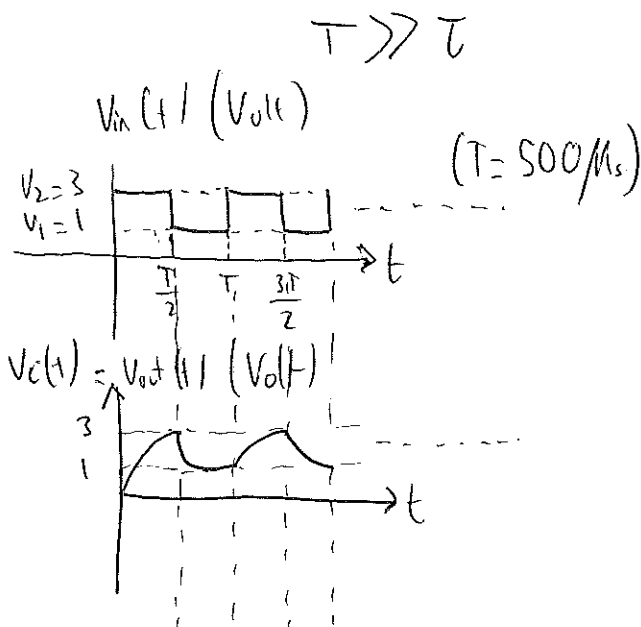 T >> τ
Vin(t) (Volt)
(T = 500μs)
V₂ = 3
V₁ = 1
T/2 T 3T/2 t
Vc(t) = Vout(t) (Volt)
3
1
t